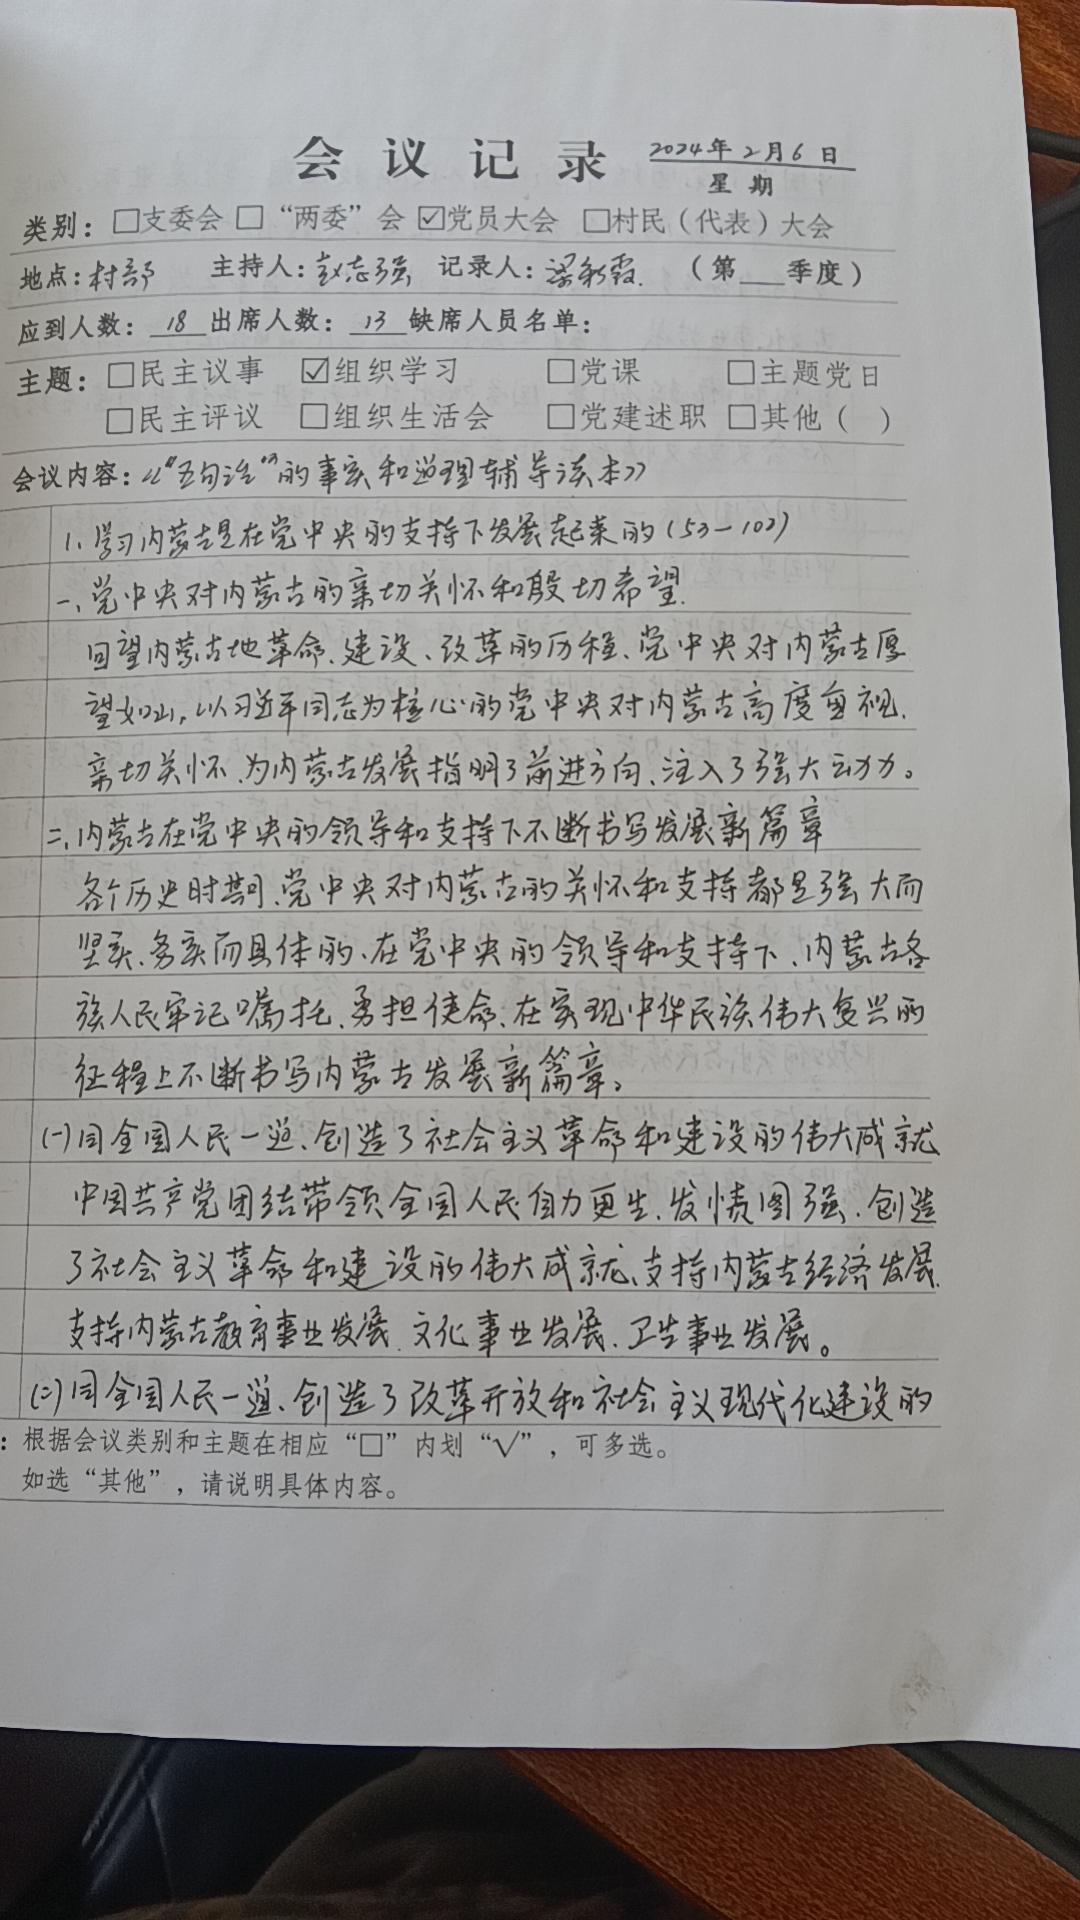 会议记录 2024年2月6日
星期
类别：□支委会 □“两委”会 ☑党员大会 □村民（代表）大会
地点：村部 主持人：赵志强 记录人：梁彩霞 （第 季度）
应到人数：18 出席人数：13 缺席人员名单：
主题：□民主议事 ☑组织学习 □党课 □主题党日
□民主评议 □组织生活会 □党建述职 □其他（ ）
会议内容：《“五句话”的事实和道理辅导读本》
1、学习内蒙古是在党中央的支持下发展起来的（53—102）
一、党中央对内蒙古的亲切关怀和殷切希望.
回望内蒙古地革命、建设、改革的历程、党中央对内蒙古厚
望如山，以习近平同志为核心的党中央对内蒙古高度重视、
亲切关怀、为内蒙古发展指明了前进方向、注入了强大动力。
二、内蒙古在党中央的领导和支持下不断书写发展新篇章
各个历史时期、党中央对内蒙古的关怀和支持都是强大而
坚实、务实而具体的、在党中央的领导和支持下、内蒙古各
族人民牢记嘱托、勇担使命、在实现中华民族伟大复兴的
征程上不断书写内蒙古发展新篇章。
(一)同全国人民一道、创造了社会主义革命和建设的伟大成就
中国共产党团结带领全国人民自力更生、发愤图强、创造
了社会主义革命和建设的伟大成就、支持内蒙古经济发展、
支持内蒙古教育事业发展、文化事业发展、卫生事业发展。
(二)同全国人民一道、创造了改革开放和社会主义现代化建设的
：根据会议类别和主题在相应“□”内划“√”，可多选。
如选“其他”，请说明具体内容。